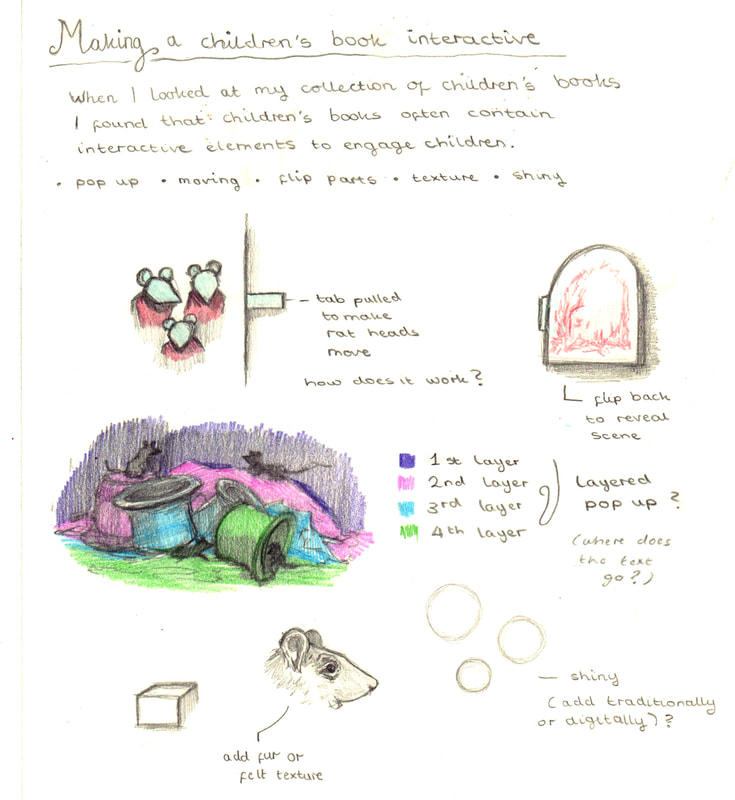 Making a children's book interactive
When I looked at my collection of children's books
I found that children's books often contain
interactive elements to engage children.
• pop up • moving • flip parts • texture • shiny
tab pulled
to make
rat heads
move
how does it work?
flip back
to reveal
scene
1st layer
2nd layer
3rd layer
4th layer
Layered
pop up?
(where does
the text
go?)
shiny
(add traditionally
or digitally)?
add fur or
felt texture